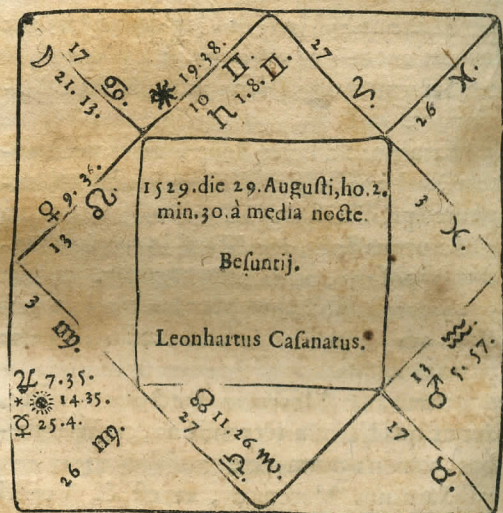 ☽ 17 ♋
21. 13.
✷ 19. 38.
10 ♊
♄ 1. 8. ♊
27
26 ♓
♀ 9. 36.
13 ♌
1529. die 29. Auguſti, ho. 2.
min. 30. à media nocte
Beſuntij.
Leonhartus Caſanatus.
3 ♓
3 ♍
♃ 7. 35.
* ☉ 14. 35.
☿ 25. 4.
26 ♍
☊ 11. 26 ♏
27 ♎
13 ♒
♂ 5. 57.
17